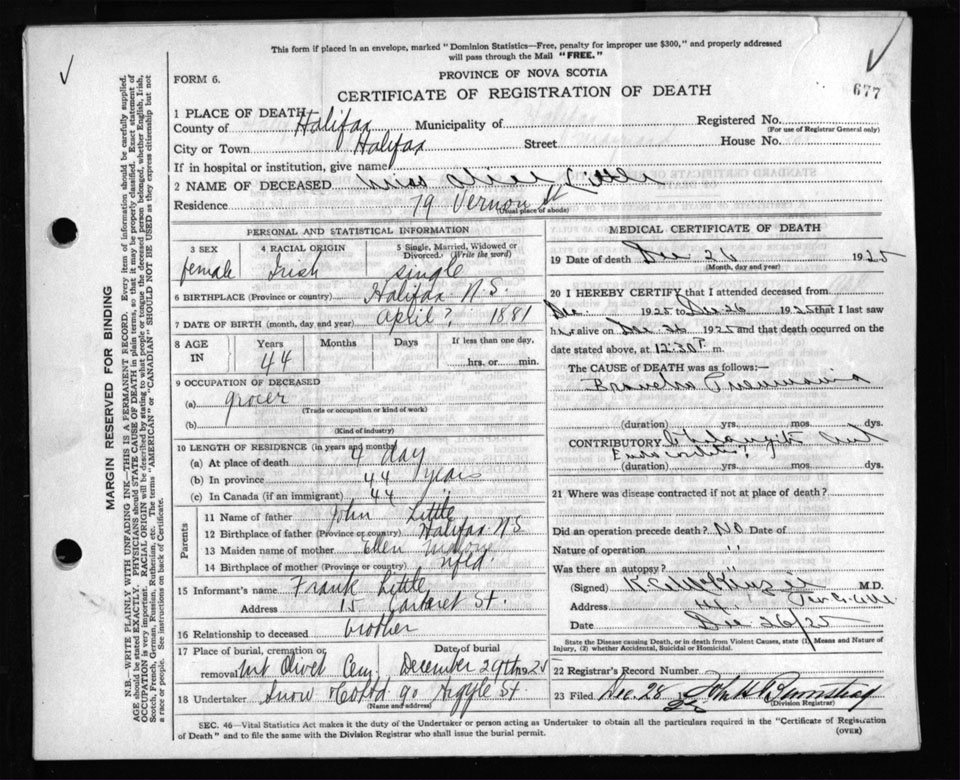 This form if placed in an envelope, marked "Dominion Statistics—Free, penalty for improper use $300," and properly addressed
will pass through the Mail "FREE."
FORM 6.
PROVINCE OF NOVA SCOTIA
CERTIFICATE OF REGISTRATION OF DEATH
677
1 PLACE OF DEATH
County of Halifax Municipality of Registered No.
(For use of Registrar General only)
City or Town Halifax Street House No.
If in hospital or institution, give name
2 NAME OF DECEASED Miss Little
Residence 79 Vernon St
(Usual place of abode)
PERSONAL AND STATISTICAL INFORMATION
3 SEX 4 RACIAL ORIGIN 5 Single, Married, Widowed or Divorced. (Write the word)
female Irish single
6 BIRTHPLACE (Province or country) Halifax N.S.
7 DATE OF BIRTH (month, day and year) April ? 1881
8 AGE IN Years Months Days If less than one day,
44 hrs. or min.
9 OCCUPATION OF DECEASED
(a) grocer
(Trade or occupation or kind of work)
(b)
(Kind of industry)
10 LENGTH OF RESIDENCE (in years and months)
(a) At place of death 4 day
(b) In province 44 years
(c) In Canada (if an immigrant) 44 "
Parents
11 Name of father John Little
12 Birthplace of father (Province or country) Halifax N S
13 Maiden name of mother Ellen
14 Birthplace of mother (Province or country) Nfld.
15 Informant's name Frank Little
Address 15 Cartaret St.
16 Relationship to deceased brother
17 Place of burial, cremation or removal Date of burial
Mt Olivet Cem December 29th 1925
18 Undertaker Snow & Co Ltd 90 Argyle St.
(Name and address)
MEDICAL CERTIFICATE OF DEATH
19 Date of death Dec 26 1925
(Month, day and year)
20 I HEREBY CERTIFY that I attended deceased from
Dec. 1925 to Dec 26 1925 that I last saw
her alive on Dec 26 1925 and that death occurred on the
date stated above, at 12:30 P m.
The CAUSE of DEATH was as follows:—
Broncho Pneumonia
(duration) yrs. mos. dys.
CONTRIBUTORY
Endocarditis
(duration) yrs. mos. dys.
21 Where was disease contracted if not at place of death?
Did an operation precede death? No Date of
Nature of operation "
Was there an autopsy? "
(Signed) M.D.
Address
Date Dec 26/25
State the Disease causing Death, or in death from Violent Causes, state (1,) Means and Nature of
Injury, (2) whether Accidental, Suicidal or Homicidal.
22 Registrar's Record Number
23 Filed Dec. 28
(Division Registrar)
SEC. 46—Vital Statistics Act makes it the duty of the Undertaker or person acting as Undertaker to obtain all the particulars required in the "Certificate of Registration
of Death" and to file the same with the Division Registrar who shall issue the burial permit.
(OVER)
MARGIN RESERVED FOR BINDING
N.B.—WRITE PLAINLY WITH UNFADING INK—THIS IS A PERMANENT RECORD. Every item of information should be carefully supplied.
AGE should be stated EXACTLY. PHYSICIANS should STATE CAUSE OF DEATH in plain terms, so that it may be properly classified. Exact statement of
OCCUPATION is very important. RACIAL ORIGIN will be described by stating to what people or tongue the deceased person belonged, whether English, Irish,
Scotch, French, German, Russian, Ruthenian, etc. The terms "AMERICAN" or "CANADIAN" SHOULD NOT BE USED as they express citizenship but not
a race or people. See instructions on back of Certificate.